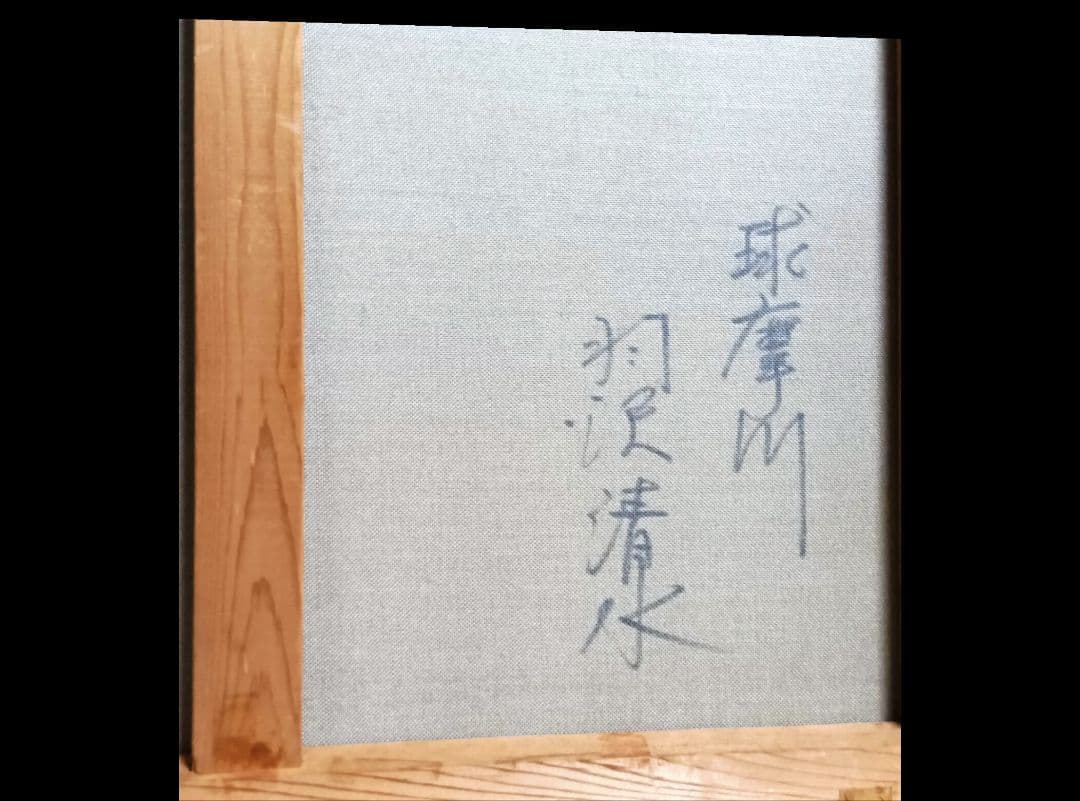 球摩川
羽沢清水